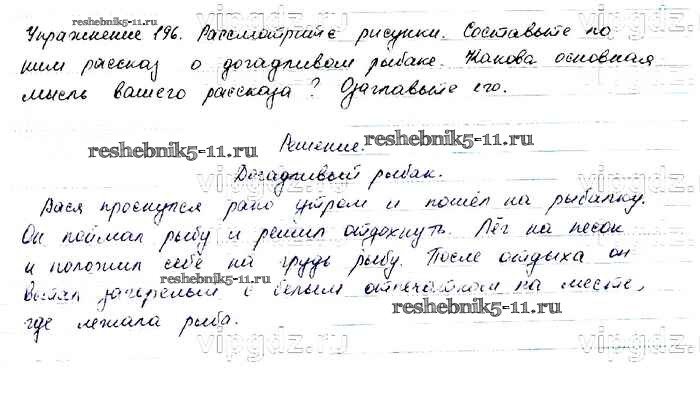 reshebnik5-11.ru
Упражнение 196. Рассмотрите рисунки. Составьте по
ним рассказ о догадливом рыбаке. Какова основная
мысль вашего рассказа? Озаглавьте его.
vipgdz.ru
Решение.
reshebnik5-11.ru
reshebnik5-11.ru
Догадливый рыбак.
vipgdz.ru
Вася проснулся рано утром и пошёл на рыбалку.
Он поймал рыбу и решил отдохнуть. Лёг на песок
и положил себе на грудь рыбу. После отдыха он
reshebnik5-11.ru
встал загорелым с белым отпечатком на месте,
reshebnik5-11.ru
где лежала рыба.
vipgdz.ru